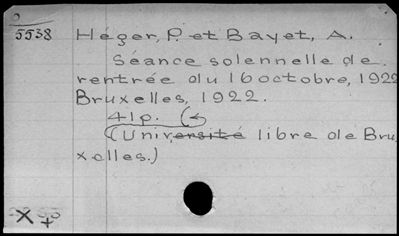 5538
Héger, P. et Bayet, A.
Séance solennelle de
rentrée du 16 octobre, 1922
Bruxelles, 1922.
41p.
(Université libre de Bru
xelles.)